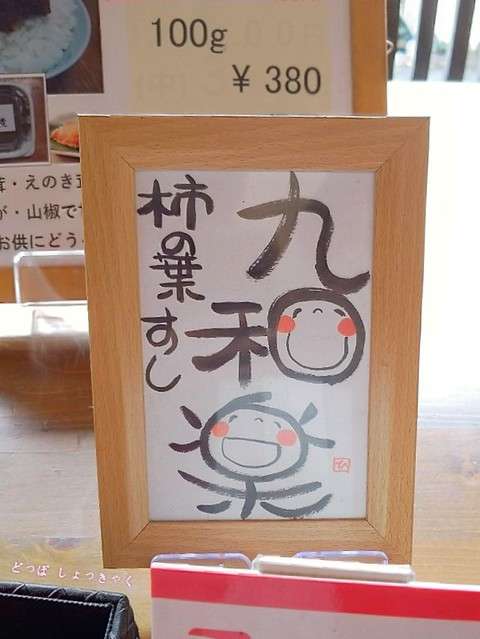 100g
¥ 380
・えのき
・山椒で
お供にどう
九和楽
柿の葉すし
どっぽ しょっきゃく